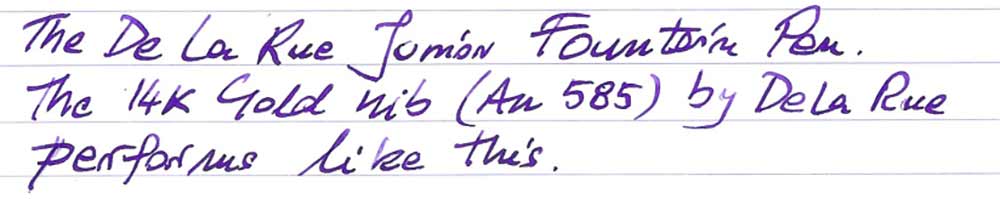 The De La Rue Junior Fountain Pen.
The 14K Gold nib (Au 585) by De La Rue
performs like this.